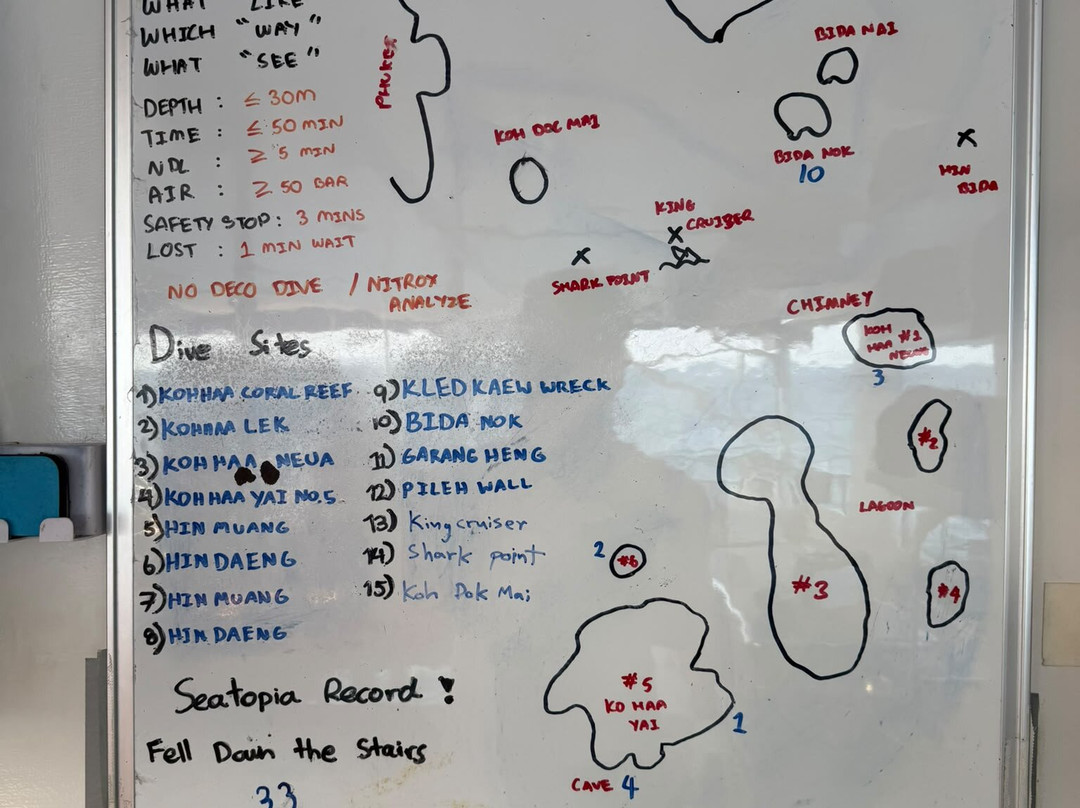 WHAT "LIKE"
WHICH "WAY"
WHAT "SEE"
DEPTH : ≤ 30M
TIME : ≤ 50 MIN
NDL : ≥ 5 MIN
AIR : ≥ 50 BAR
SAFETY STOP : 3 MINS
LOST : 1 MIN WAIT
NO DECO DIVE / NITROX
ANALYZE
Dive Sites
1) KOHHAA CORAL REEF
2) KOHHAA LEK
3) KOH HAA NEUA
4) KOH HAA YAI NO.5
5) HIN MUANG
6) HIN DAENG
7) HIN MUANG
8) HIN DAENG
9) KLED KAEW WRECK
10) BIDA NOK
11) GARANG HENG
12) PILEH WALL
13) Kingcruiser
14) Shark point
15) Koh Dok Mai
Seatopia Record !
Fell Down the Stairs
33
PHUKET
KOH DOC MAI
BIDA NAI
BIDA NOK
10
HIN
BIDA
KING
CRUISER
SHARK POINT
CHIMNEY
KOH
HAA #1
NEUNG
3
#2
LAGOON
#3
#4
2
#6
#5
KO HAA
YAI
1
CAVE 4